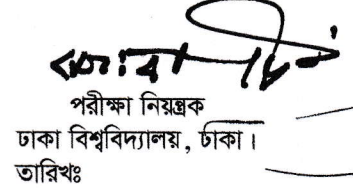 পরীক্ষা নিয়ন্ত্রক
ঢাকা বিশ্ববিদ্যালয়, ঢাকা।
তারিখঃ